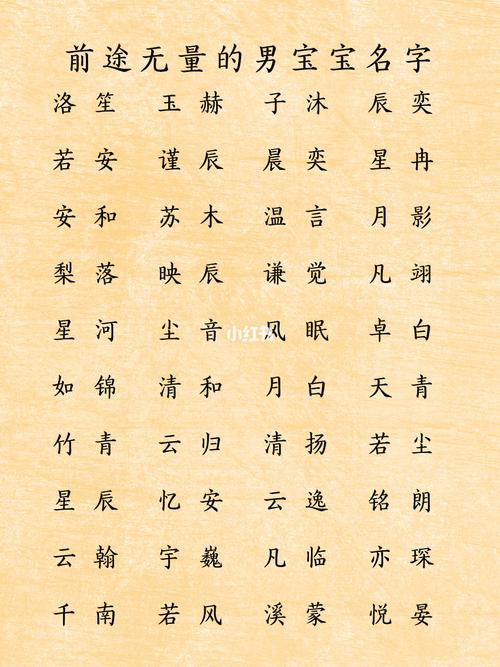 前途无量的男宝宝名字
洛笙 玉赫 子沐 辰奕
若安 谨辰 晨奕 星冉
安和 苏木 温言 月影
梨落 映辰 谦觉 凡翊
星河 尘音 风眠 卓白
小红书
如锦 清和 月白 天青
竹青 云归 清扬 若尘
星辰 忆安 云逸 铭朗
云翰 宇巍 凡临 亦琛
千南 若风 溪蒙 悦晏